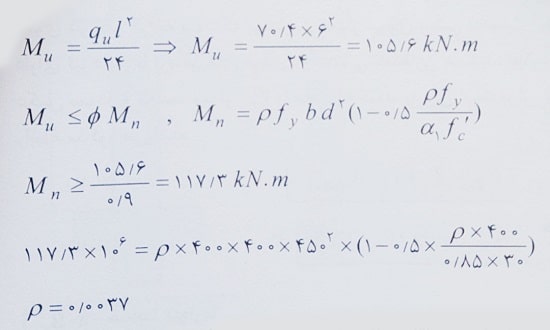 M_u = q_u l^۲ / ۲۴ ⇒ M_u = ۷۰/۴ × ۶^۲ / ۲۴ = ۱۰۵/۶ kN.m
M_u ≤ ϕ M_n , M_n = ρ f_y b d^۲ (۱ − ۰/۵ ρ f_y / α_۱ f'_c)
M_n ≥ ۱۰۵/۶ / ۰/۹ = ۱۱۷/۳ kN.m
۱۱۷/۳ × ۱۰^۶ = ρ × ۴۰۰ × ۴۰۰ × ۴۵۰^۲ × (۱ − ۰/۵ × ρ × ۴۰۰ / ۰/۸۵ × ۳۰)
ρ = ۰/۰۰۳۷